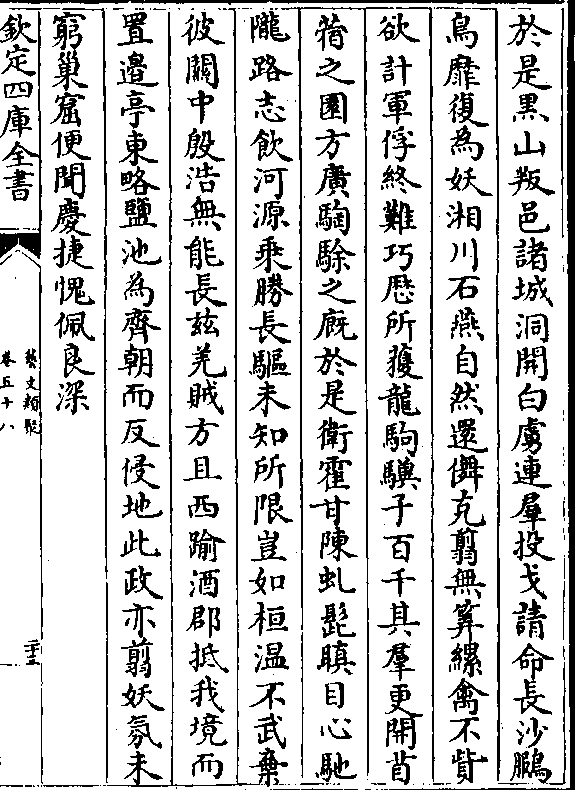 於是黒山叛邑諸城洞開白虜連羣投戈請命長沙鵩
鳥靡復為妖湘川石燕自然還儛克翦無筭縲禽不貲
欲計軍俘終難巧厯所獲龍駒驥子百千其羣更開苜
蓿之園方廣騊駼之廐於是衛霍甘陳虬髭瞋目心馳
隴路志飲河源乘勝長驅未知所限豈如桓温不武棄
彼關中殷浩無能長兹羌賊方且西踰酒郡抵我境而
置邉亭東略鹽池為齊朝而反侵地此政亦翦妖氛未
窮巢窟便聞慶捷愧佩良深
欽定四庫全書
藝文類聚
卷五十八
二十三